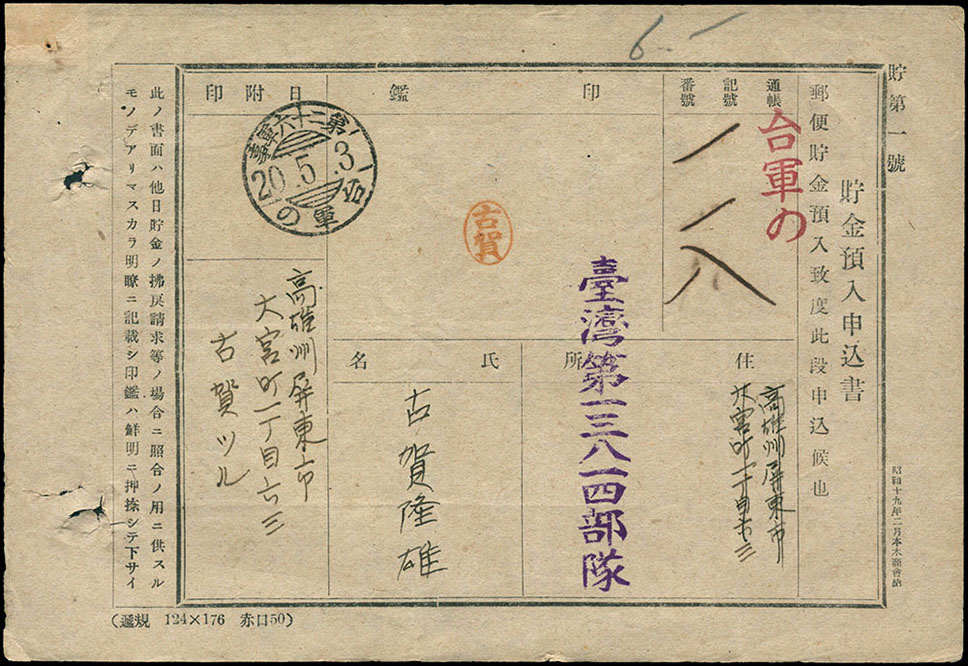 貯第一號
貯金預入申込書
郵便貯金預入致度此段申込候也
通帳
記號
番號
台軍の
一一八
印鑑
古賀
日附印
第二十六軍事
20.5.3
台軍の
住所
高雄州屏東市
大宮町一丁目六三
臺灣第一三八一四部隊
氏名
古賀隆雄
高雄州屏東市
大宮町一丁目六三
古賀ツル
此ノ書面ハ他日貯金ノ拂戻請求等ノ場合ニ照合ノ用ニ供スル
モノデアリマスカラ明瞭ニ記載シ印鑑ハ鮮明ニ押捺シテ下サイ
(遞規 124×176 赤口50)